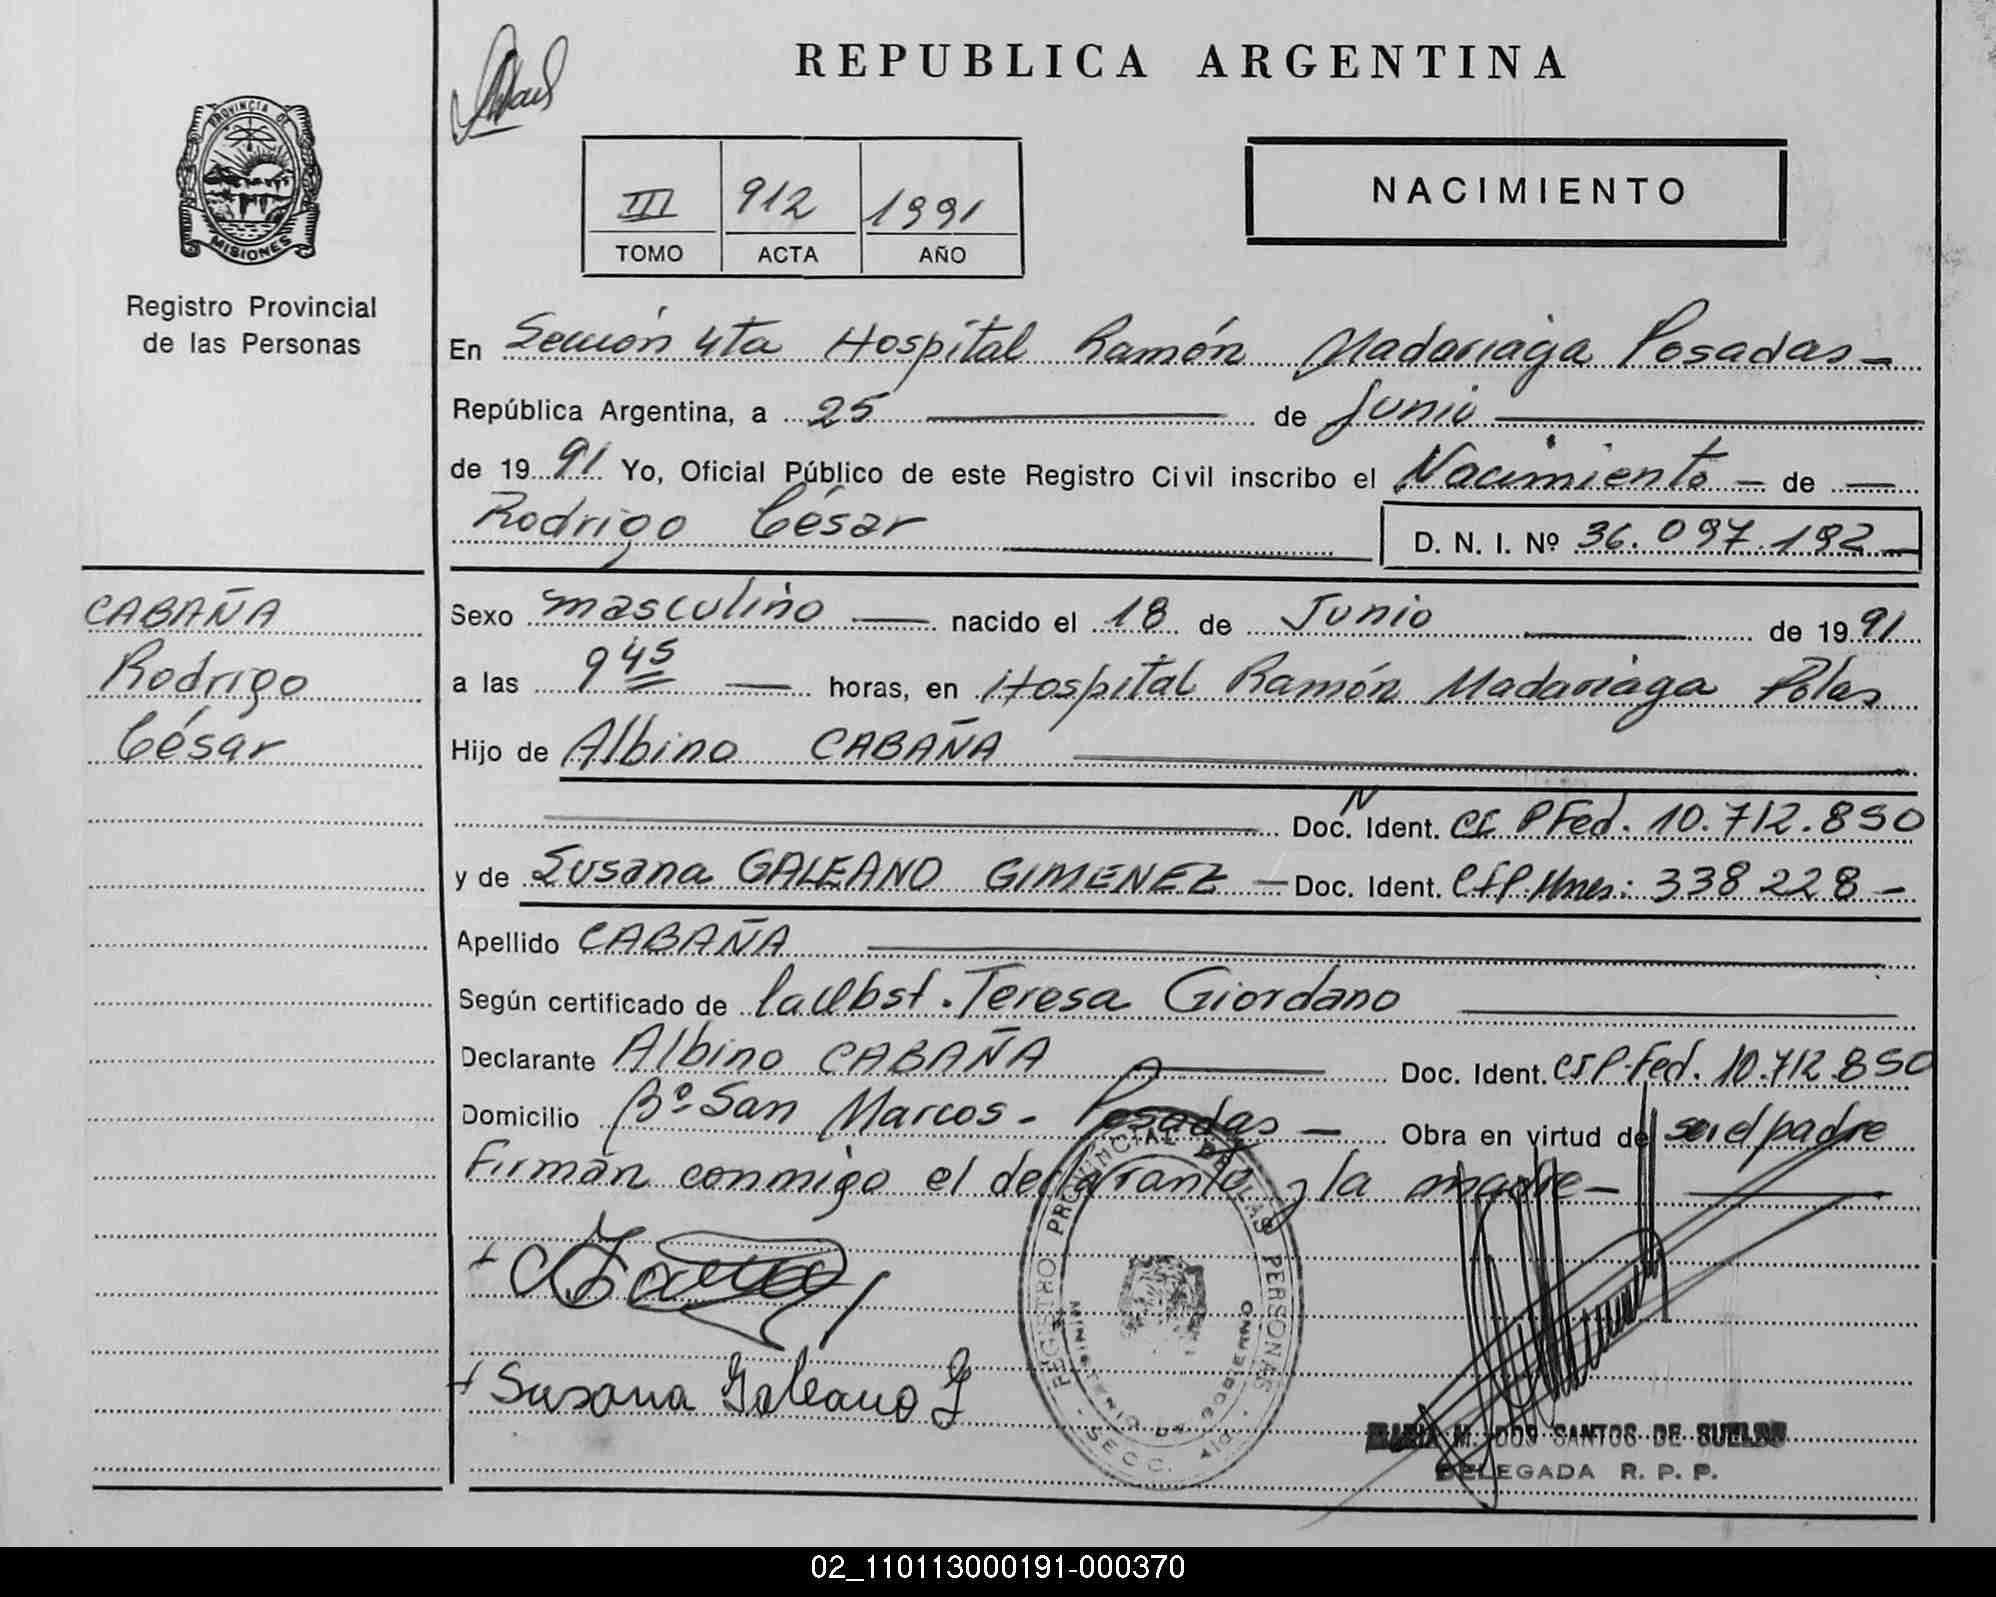 REPUBLICA ARGENTINA
PROVINCIA DE
MISIONES
Registro Provincial
de las Personas
III 912 1991
TOMO ACTA AÑO
NACIMIENTO
En Sección 4ta Hospital Ramón Madariaga Posadas-
República Argentina, a 25 de Junio
de 1991 Yo, Oficial Público de este Registro Civil inscribo el Nacimiento - de
Rodrigo César D. N. I. Nº 36.097.192
CABAÑA
Rodrigo
César
Sexo masculino nacido el 18 de Junio de 1991
a las 9 45 horas, en Hospital Ramón Madariaga Pdas
Hijo de Albino CABAÑA
Doc. Ident. CI PFed. 10.712.850
y de Susana GALEANO GIMENEZ - Doc. Ident. CIP. Mnes: 338228-
Apellido CABAÑA
Según certificado de la Obst. Teresa Giordano
Declarante Albino CABAÑA Doc. Ident. CIP.Fed. 10.712.850
Domicilio Bº San Marcos - Posadas - Obra en virtud de ser el padre
Firman conmigo el declarante y la madre-
REGISTRO PROVINCIAL DE LAS PERSONAS
MINISTERIO DE GOBIERNO
- SECC. 4ta -
Susana Galeano G
MARIA M. DOS SANTOS DE
DELEGADA R. P. P.
02_110113000191-000370